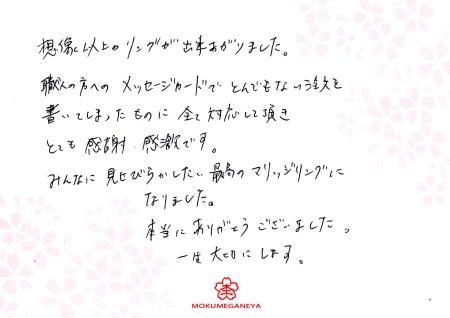 想像以上のリングが出来あがりました。
職人の方への メッセージカードで とんでもない注文を
書いてしまったものに 全て対応して頂き
とても 感謝 感激です。
みんなに 見せびらかしたい 最高の マリッジリングに
なりました。
本当に ありがとう ございました。
一生 大切に します。
杢
MOKUMEGANEYA